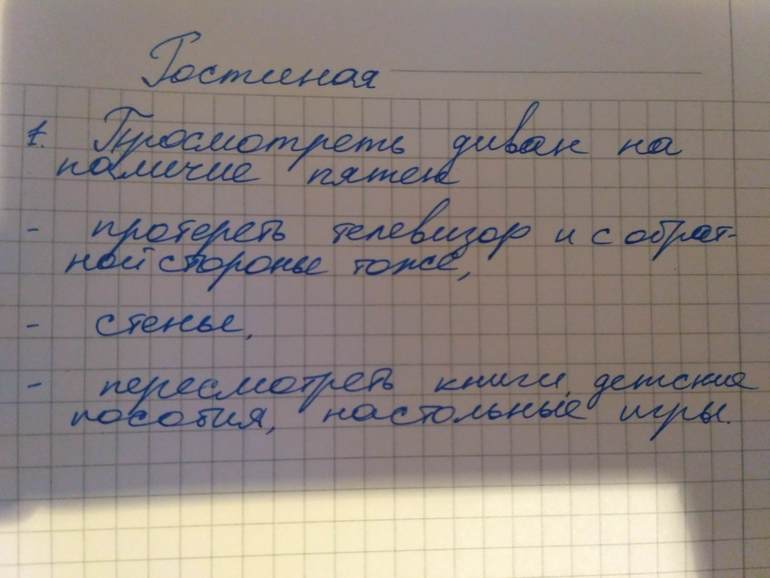 Гостиная
1. Просмотреть диван на
наличие пятен
- протереть телевизор и с обрат-
ной стороны тоже,
- стены,
- пересмотреть книги, детские
пособия, настольные игры.